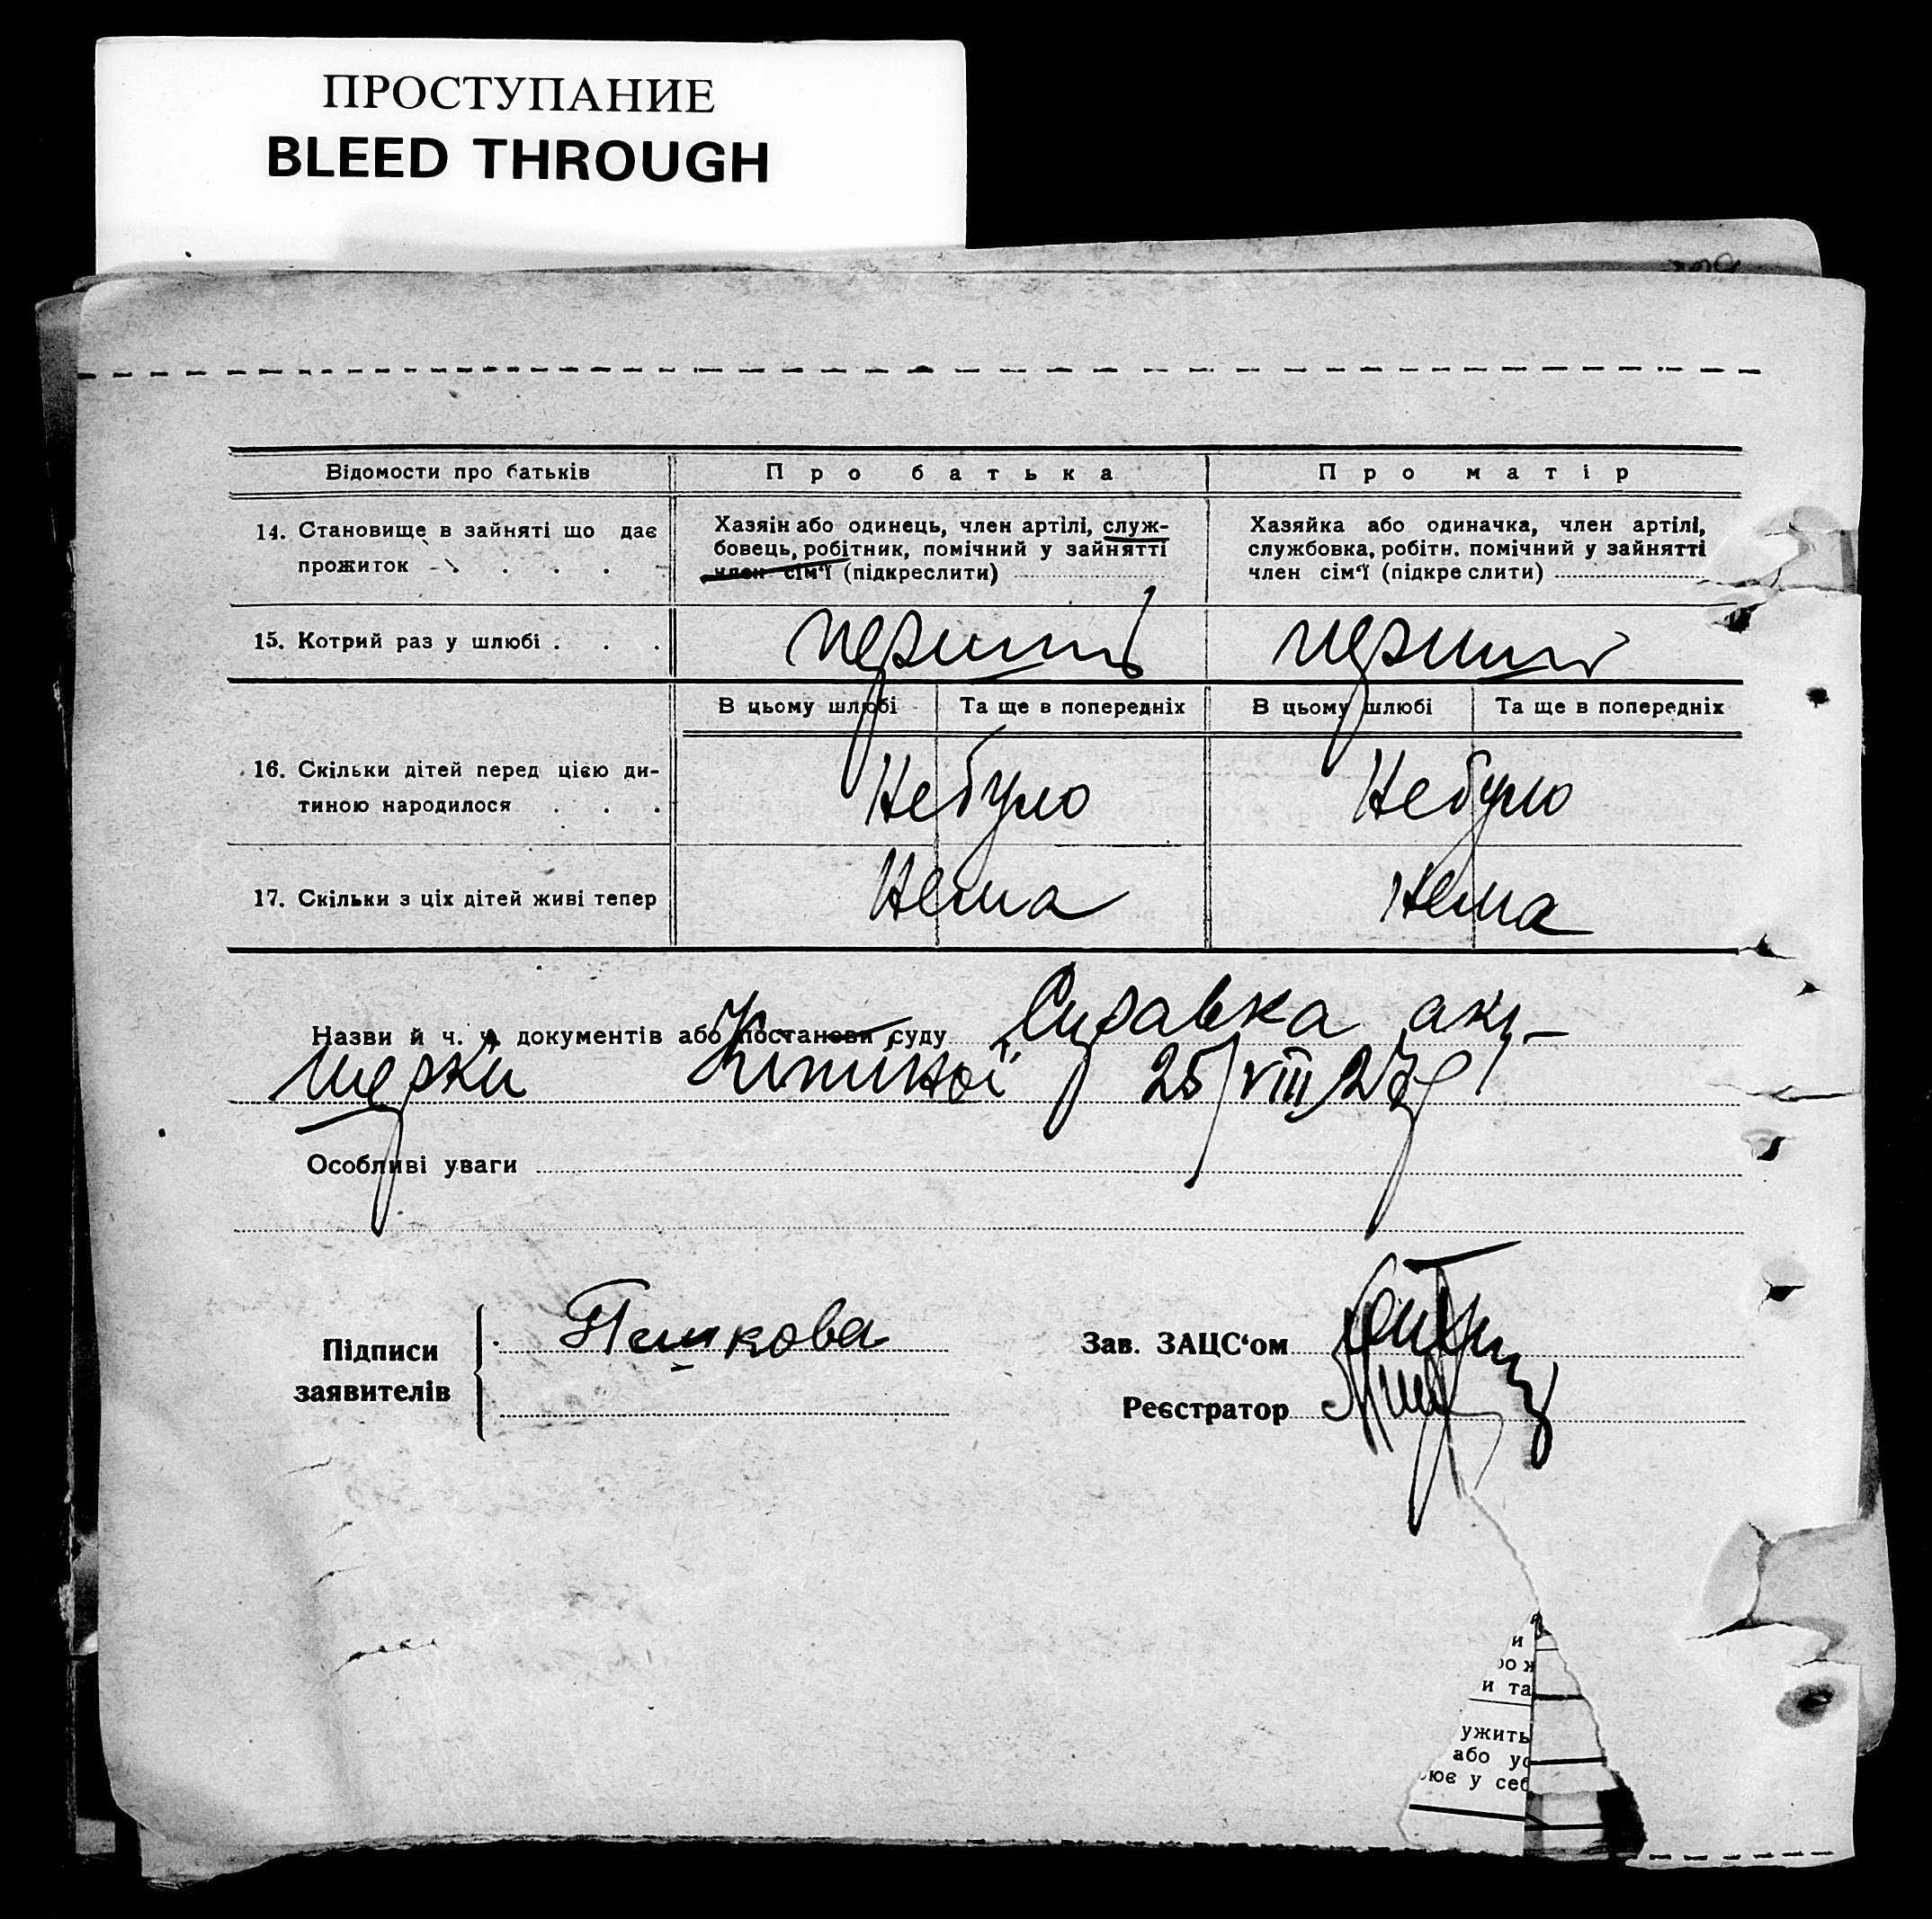 ПРОСТУПАНИЕ
BLEED THROUGH
Відомости про батьків
Про батька
Про матір
14. Становище в зайняті що дає
прожиток . . . .
Хазяін або одинець, член артілі, служ-
бовець, робітник, помічний у зайнятті
член сім'ї (підкреслити)
Хазяйка або одиначка, член артілі,
службовка, робітн. помічний у зайнятті
член сім'ї (підкреслити)
15. Котрий раз у шлюбі . . .
перший
перший
В цьому шлюбі
Та ще в попередніх
В цьому шлюбі
Та ще в попередніх
16. Скільки дітей перед цією ди-
тиною народилося . . .
Небуло
Небуло
17. Скільки з ціх дітей живі тепер
Нема
Нема
Назви й ч. ч. документів або постанови суду Справка аку-
шерки 25/VIII 27
Особливі уваги
Підписи
заявителів
Пешкова
Зав. ЗАЦС'ом
Реєстратор
и
ро ж
и та
ужить
або ус
ює у себ